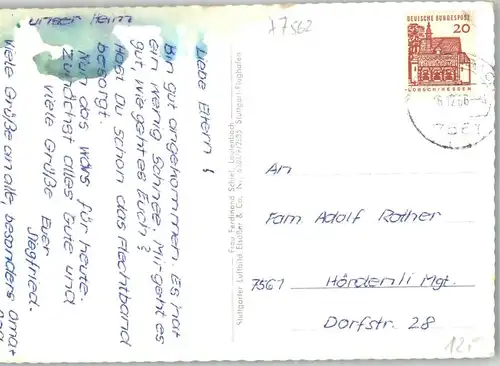 unser Heim
Liebe Eltern!
Bin gut angekommen. Es hat
ein wenig Schnee. Mir geht es
gut, wie geht es Euch?
Habt Du schon das Flechtband
besorgt.
Nun das wärs für heute.
Zunächst alles Gute und
viele Grüße Euer
Siegfried.
Viele Grüße an alle, besonders Oma+
Frau Ferdinand Schiel, Lautenbach
Stuttgarter Luftbild Elsäßer & Co., Stuttgart-Flughafen
A7562
DEUTSCHE BUNDESPOST
20
LORSCH/HESSEN
An
Fam Adolf Rother
7561 Hördenli Mgt.
Dorfstr. 28
12,-